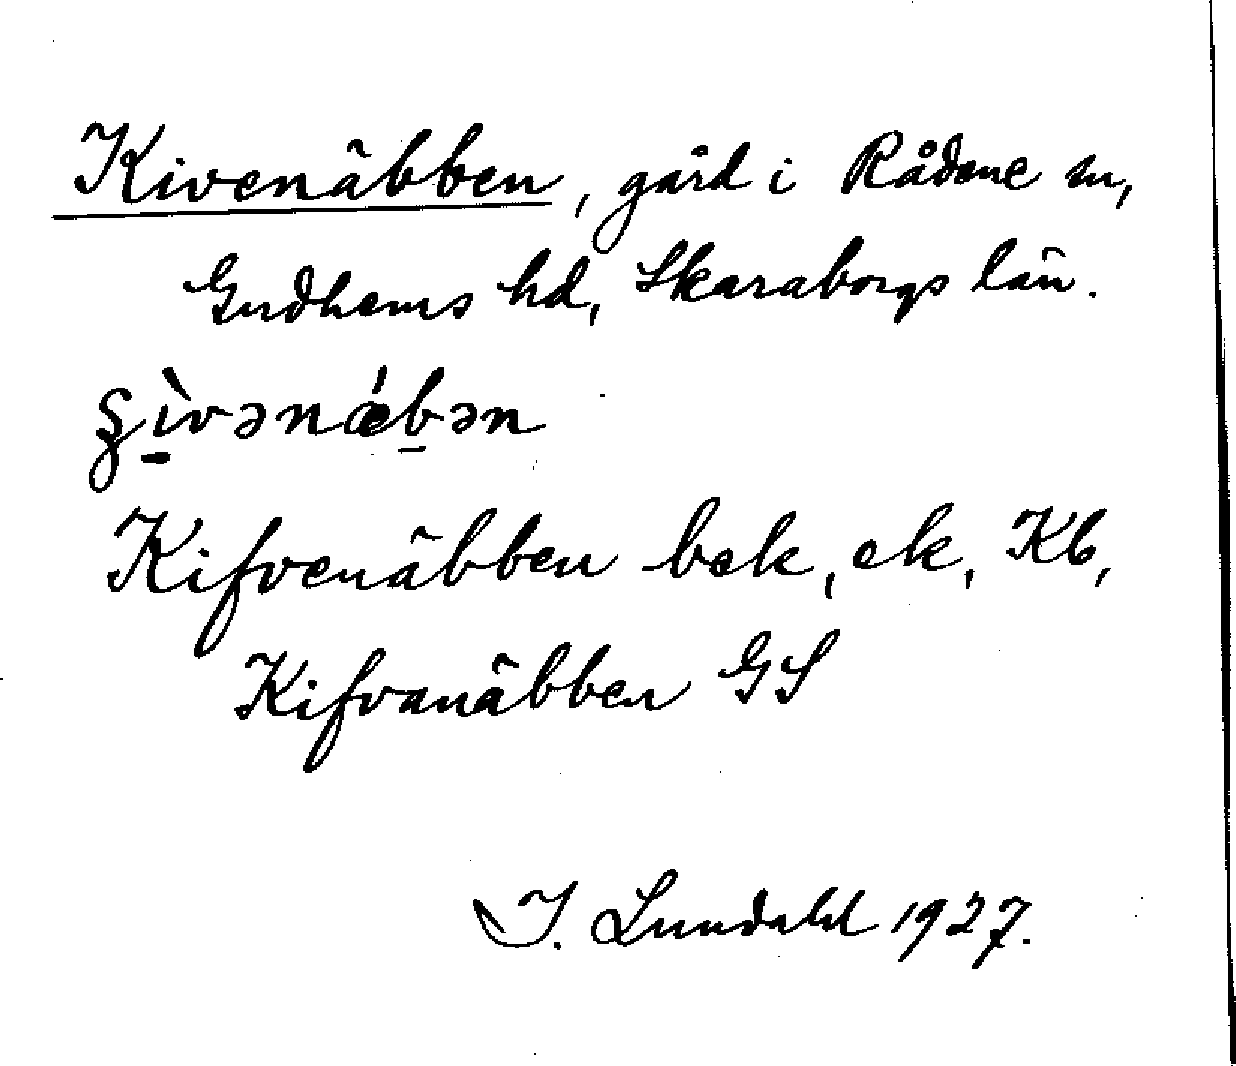 Kivenäbben, gård i Rådene sn,
Gudhems hd, Skaraborgs län.
ʂì̱vənǽḇən
Kifvenäbben bek, ek, Kb,
Kifvanäbben GS
I. Lundahl 1927.